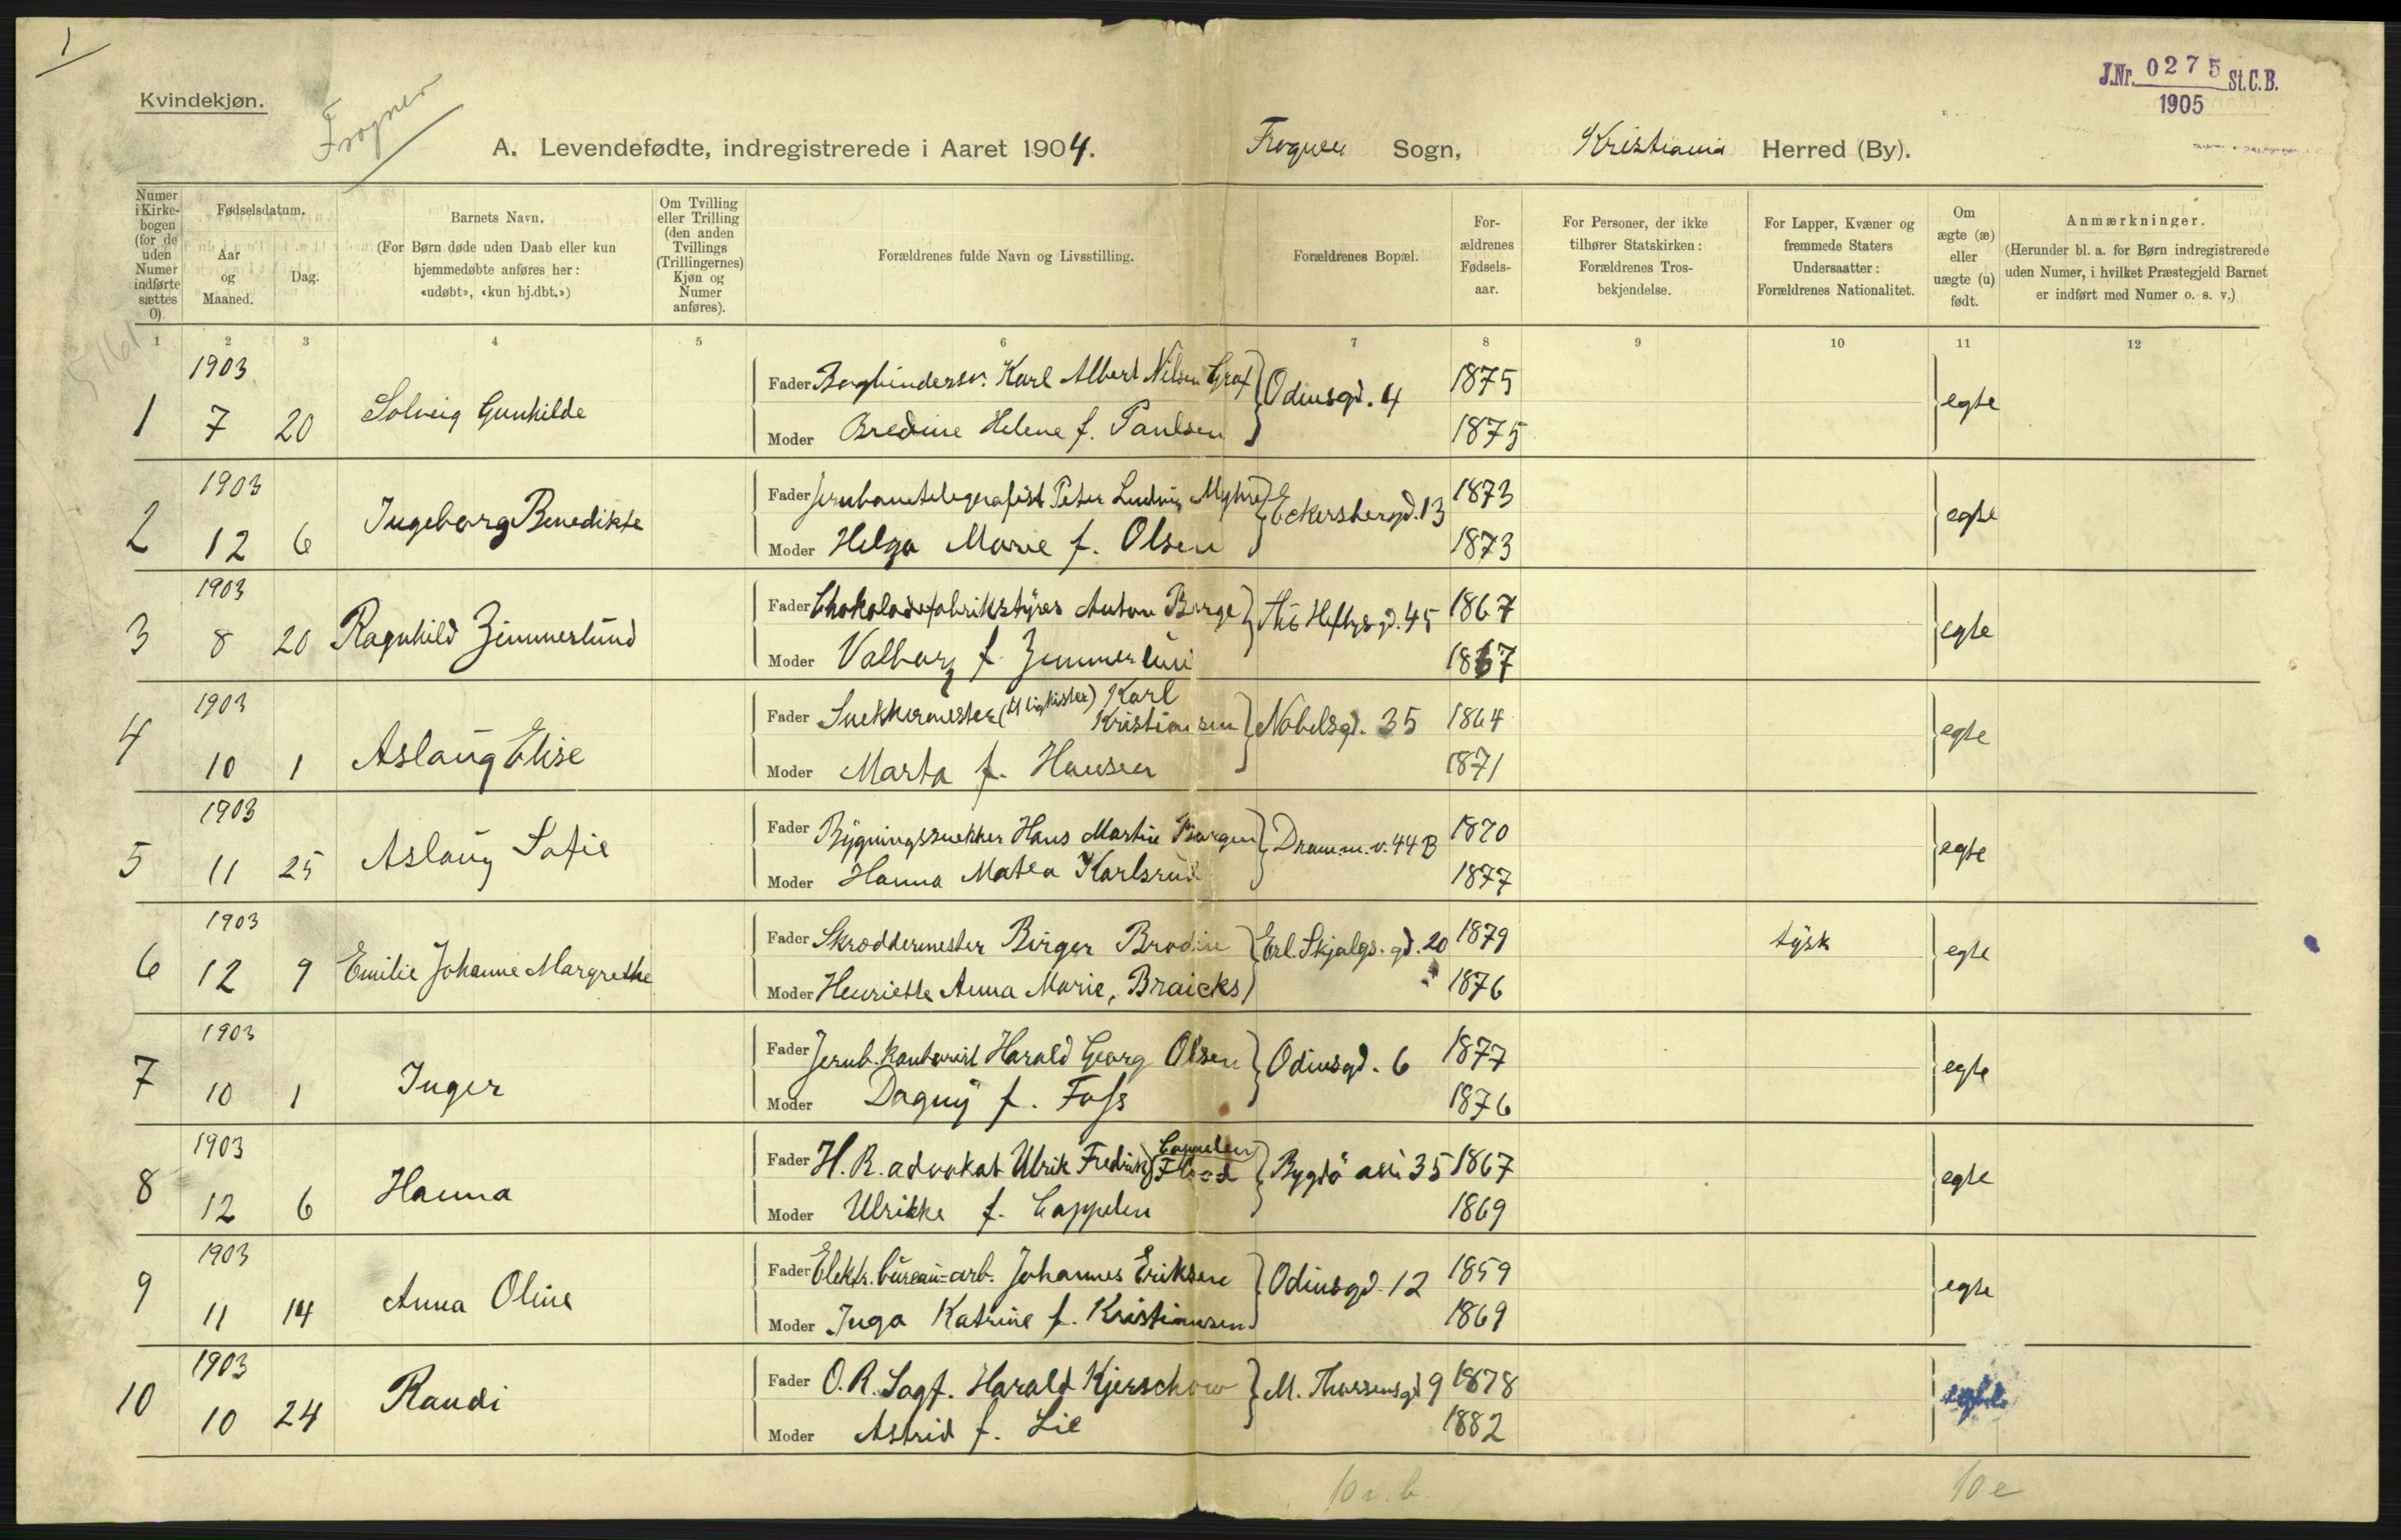 1
J.Nr. 0275 St.C.B.
1905
Kvindekjøn.
Frogner
A. Levendefødte, indregistrerede i Aaret 1904. Frogner Sogn, Kristiania Herred (By).
Numer i Kirkebogen (for de uden Numer indførte sættes 0).
Fødselsdatum.
Aar og Maaned.
Dag.
Barnets Navn.
(For Børn døde uden Daab eller kun hjemmedøbte anføres her: «udøbt», «kun hj.dbt.»)
Om Tvilling eller Trilling (den anden Tvillings (Trillingernes) Kjøn og Numer anføres).
Forældrenes fulde Navn og Livsstilling.
Forældrenes Bopæl.
Forældrenes Fødselsaar.
For Personer, der ikke tilhører Statskirken: Forældrenes Trosbekjendelse.
For Lapper, Kvæner og fremmede Staters Undersaatter: Forældrenes Nationalitet.
Om ægte (æ) eller uægte (u) født.
Anmærkninger.
(Herunder bl. a. for Børn indregistrerede uden Numer, i hvilket Præstegjeld Barnet er indført med Numer o. s. v.)
1 2 3 4 5 6 7 8 9 10 11 12
1903
Fader Bogbindersv. Karl Albert Nilsen Graf Odinsgd. 4 1875
1 7 20 Solveig Gunhilde egte
Moder Bredine Helene f. Paulsen 1875
1903
Fader Jernbanetelegrafist Peter Ludvig Myhre Eckersbergd. 13 1873
2 12 6 Ingeborg Benedikte egte
Moder Helga Marie f. Olsen 1873
1903
Fader Chokoladefabrikstyrer Anton Borge Ths Heftysgd. 45 1867
3 8 20 Ragnhild Zimmerlund egte
Moder Valborg f. Zimmerlund 1867
1903
Fader Snekkermester (til ligkister) Karl Kristiansen Nobelsgd. 35 1864
4 10 1 Aslaug Elise egte
Moder Marta f. Hansen 1871
1903
Fader Bygningssnekker Hans Martin Borgen Dramm.v. 44 B 1870
5 11 25 Aslaug Sofie egte
Moder Hanna Matea Karlsrud 1877
1903
Fader Skræddermester Birger Brodin Erl. Skjalgs. gd. 20 1879 tysk
6 12 9 Emilie Johanne Margrethe egte
Moder Henriette Anna Marie, Braicks 1876
1903
Fader Jernb. kontorist Harald Georg Olsen Odinsgd. 6 1877
7 10 1 Inger egte
Moder Dagny f. Foss 1876
1903
Fader H. R. advokat Ulrik Fredrik Cappelen Bygdö alle 35 1867
8 12 6 Hanna egte
Moder Ulrikke f. Cappelen 1869
1903
Fader Elektr. büreau-arb. Johannes Eriksen Odinsgd. 12 1859
9 11 14 Anna Oline egte
Moder Inga Katrine f. Kristiansen 1869
1903
Fader O. R. Sagf. Harald Kjerschow M. Thoresensgd 9 1878
10 10 24 Randi egte
Moder Astrid f. Lie 1882
10 e